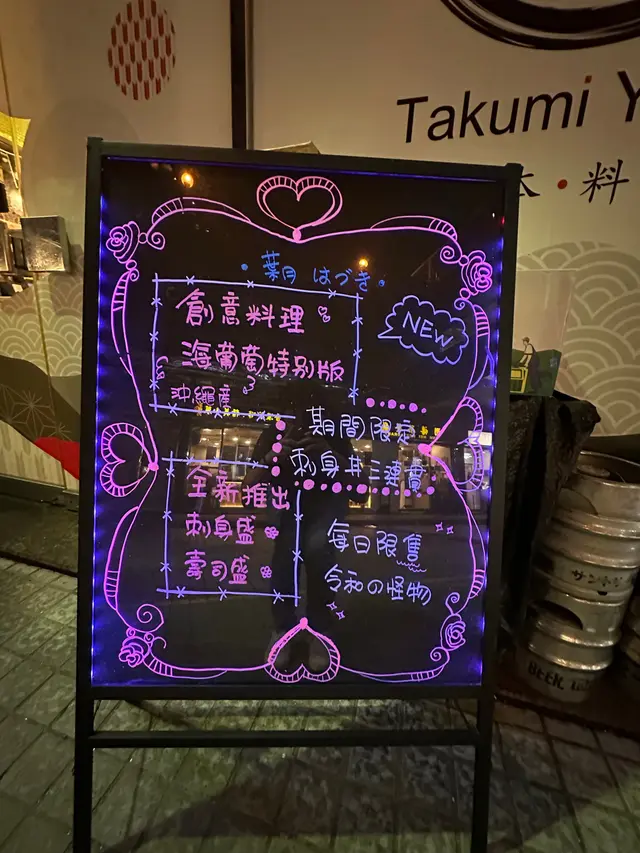 Takumi Y
本・料
・葉月 はづき・
創意料理
NEW
海葡萄特別版
沖繩産
期間限定
刺身丼三連賞
全新推出
刺身盛
壽司盛
每日限售
令和の怪物
サントリー
BEER